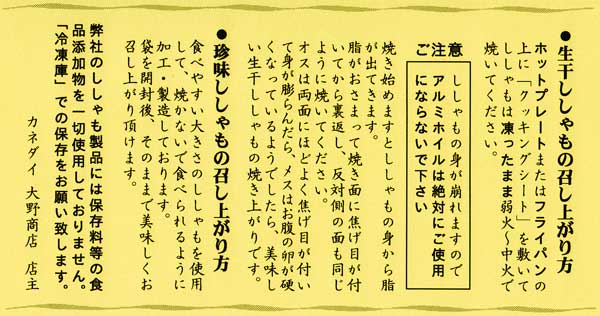 ●生干ししゃもの召し上がり方
ホットプレートまたはフライパンの
上に「クッキングシート」を敷いて
ししゃもは凍ったまま弱火～中火で
焼いてください。
ご注意
ししゃもの身が崩れますので
アルミホイルは絶対にご使用
にならないで下さい
焼き始めますとししゃもの身から脂
が出てきます。
脂がおさまって焼き面に焦げ目が付
いてから裏返し、反対側の面も同じ
ように焼いてください。
オスは両面にほどよく焦げ目が付い
て身が膨らんだら、メスはお腹の卵が硬
くなっているようでしたら、美味し
い生干ししゃもの焼き上がりです。
●珍味ししゃもの召し上がり方
食べやすい大きさのししゃもを使用
して、焼かないで食べられるように
加工・製造しております。
袋を開封後、そのままで美味しくお
召し上がり頂けます。
弊社のししゃも製品には保存料等の食
品添加物を一切使用しておりません。
「冷凍庫」での保存をお願い致します。
カネダイ 大野商店 店主